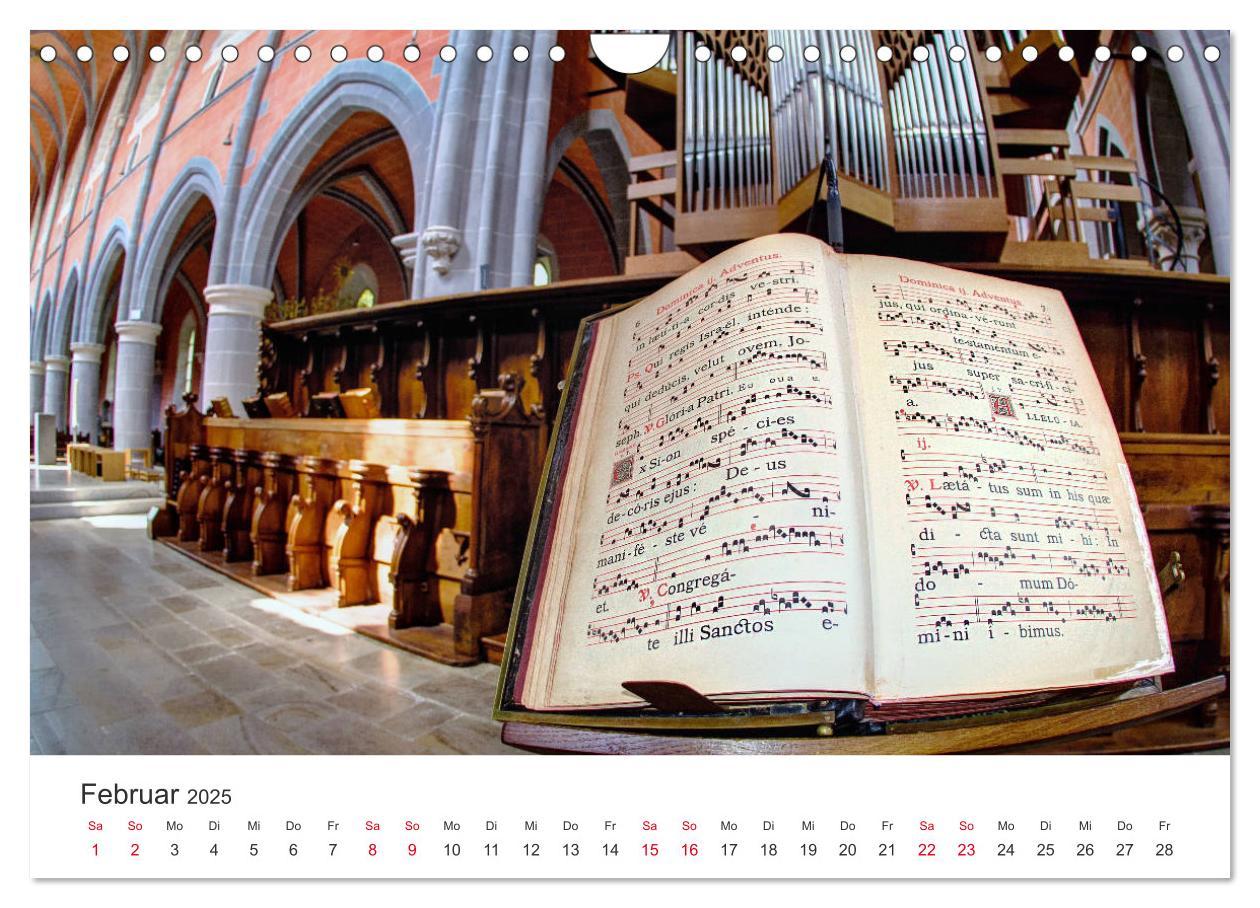 6 Dominica ij. Adventus.
in lætí-ti-a cordis ve-stri.
Ps. Qui regis Israël, inténde:
qui dedúcis, velut ovem, Jo-
seph. ℣. Glóri-a Patri. E u o u a e.
x Si-on spé - ci-es
de-có-ris ejus: De - us
mani-fé - ste vé - ni-
et. ℣. Congregá-
te illi Sanctos e-
Dominica ij. Adventus. 7
jus, qui ordina-vé-runt
te-staméntum e-
jus super sa-cri-fí-ci-
a. A LLELÚ - IA.
ij.
℣. Lætá - tus sum in his quæ
di - cta sunt mi - hi: In
do - mum Dó-
mi-ni í - bimus.
Februar 2025
Sa So Mo Di Mi Do Fr Sa So Mo Di Mi Do Fr Sa So Mo Di Mi Do Fr Sa So Mo Di Mi Do Fr
1 2 3 4 5 6 7 8 9 10 11 12 13 14 15 16 17 18 19 20 21 22 23 24 25 26 27 28